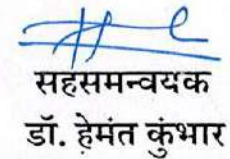 सहसमन्वयक
डॉ. हेमंत कुंभार